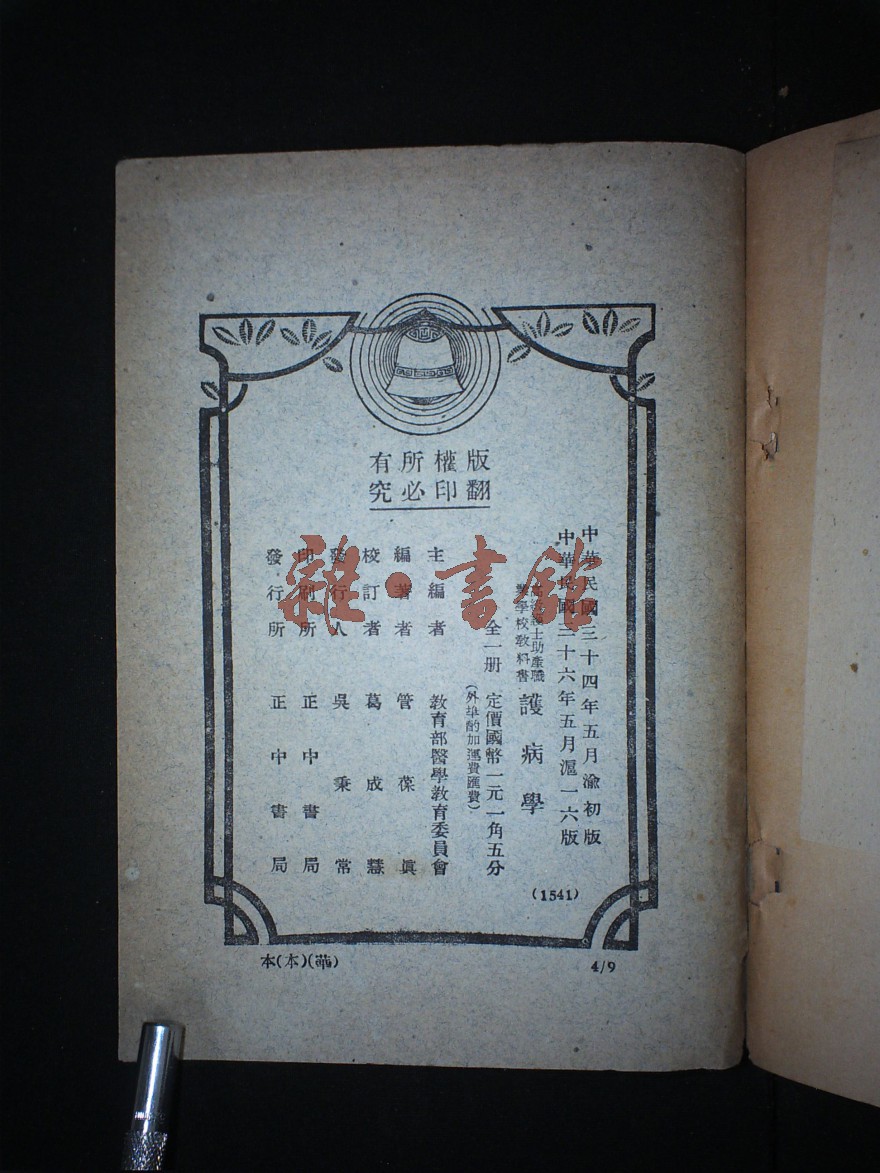 版權所有
翻印必究
中華民國三十四年五月渝初版
中華民國三十六年五月滬一六版
護士助產職
業學校教科書
護病學
(1541)
全一册 定價國幣一元一角五分
(外埠酌加運費匯費)
主編者 教育部醫學教育委員會
編著者 管葆眞
校訂者 葛成慧
發行人 吳秉常
印刷所 正中書局
發行所 正中書局
雜·書館
本(本)(華)
4/9